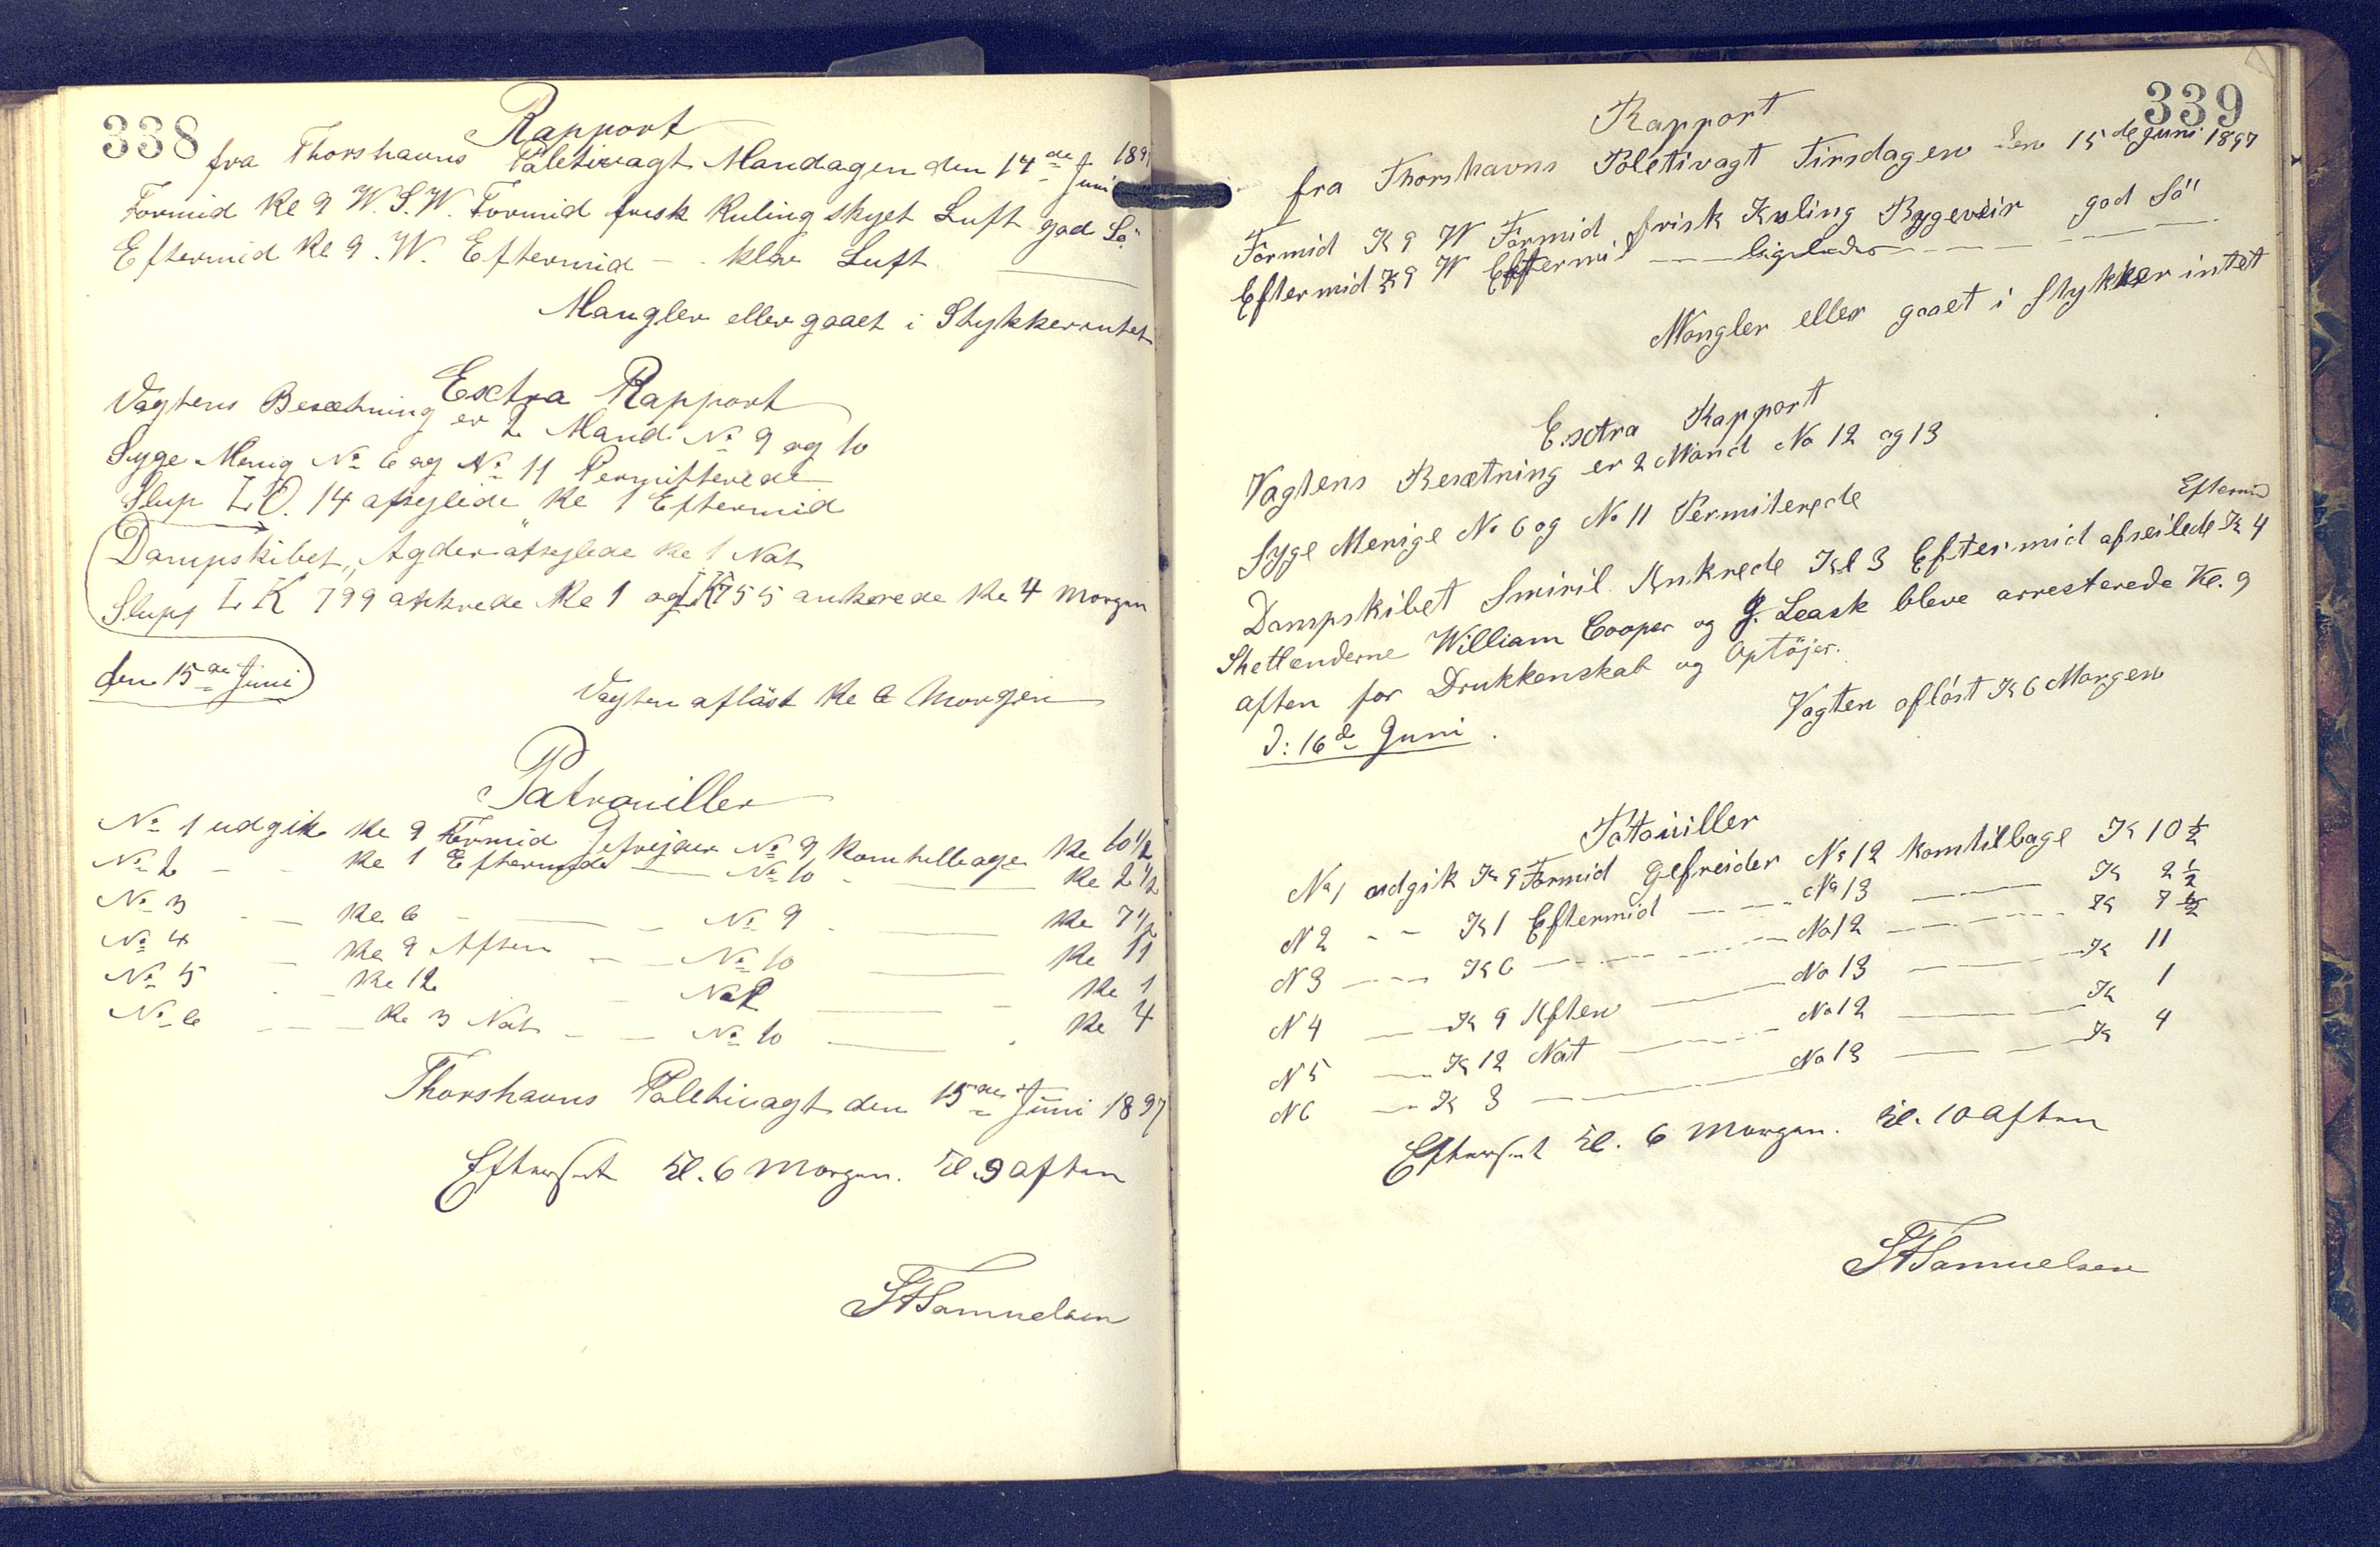 338
Rapport
fra Thorshavns Paletivagt Mandagen den 14de Juni 189
Formid Kl 9 W.S.W. Formid frisk Kuling skyet Luft god Sö
Eftermid Kl 9. W. Eftermid - - klar Luft
Mangler eller gaaet i Stykker intet
Esctra Rapport
Vagtens Besætning er 2 Mand No 9 og 10
Syge Menig No 6 og No 11 Permitterede
Slup L.O. 14 afsejlede Kl 1 Eftermid
Dampskibet „Agder" afsejlede Kl 1 Nat
Slupp LK 799 ankrede Kl 1 og LK 755 ankerede Kl 4 Morgen
den 15de Juni
Vagten aflöst Kl 6 Morgen
Patrouiller
No 1 udgik Kl 9 Formid Gefrejder No 9 Kom tilbage Kl 10 1/2
No 2 - - Kl 1 Eftermid — No 10 - — Kl 2 1/2
No 3 - — Kl 6 - — - No 9 - — Kl 7 1/2
No 4 — Kl 9 Aften — — No 10 — Kl 11
No 5 - - Kl 12 - No 9 — - Kl 1
No 6 — — Kl 3 Nat — — No 10 — - Kl 4
Thorshavns Paletivagt den 15de Juni 1897
Efterset Kl. 6 Morgen. Kl. 9 Aften
Samuelsen
339
Rapport
fra Thorshavns Poletivagt Tirsdagen den 15de Juni 1897
Formid K 9 W Formid frisk Kuling Bygeveir god Sö
Eftermid K 9 W Eftermid — — ligeledes — — — —
Mangler eller gaaet i Stykker intet
Esctra Rapport
Vagtens Besætning er 2 Mand No 12 og 13
Syge Menige No 6 og No 11 Permiterede
Eftermid
Dampskibet Smiril Ankrede Kl 3 Eftermid afseilede K 4
Shetlenderne William Cooper og J. Leask bleve arresterede Kl. 9
aften for Drukkenskab og Optöjer.
D: 16de Juni.
Vagten aflöst K 6 Morgen
Patouiller
No 1 udgik K 9 Formid Gefreider No 12 kom tilbage K 10 1/2
N 2 - - K 1 Eftermid — — No 13 — K 2 1/2
N 3 — — K 6 — — — No 12 — — — K 7 1/2
N 4 — K 9 Aften — No 13 — — K 11
N 5 — K 12 Nat — — No 12 — — K 1
N 6 — K 3 — — No 13 — — K 4
Efterset Kl. 6 Morgen. Kl. 10 Aften
Samuelsen